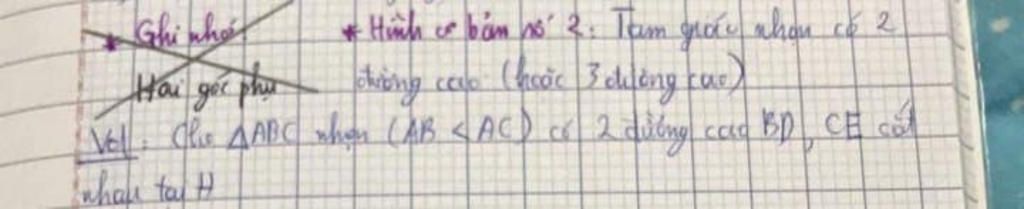 * Ghi nhớ * Hình cơ bản số 2: Tam giác nhọn có 2
Hai góc phụ đường cao (hoặc 3 đường cao)
Vd1: Cho △ABC nhọn (AB < AC) có 2 đường cao BD, CE cắt
nhau tại H